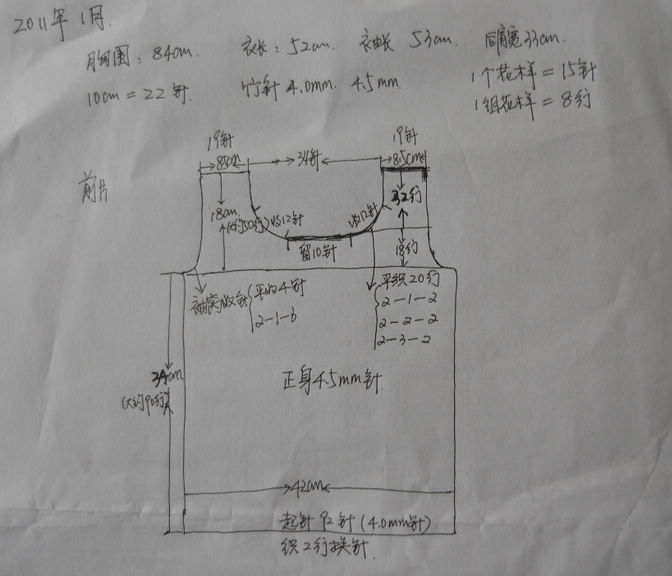 2011年1月.
胸围:84cm. 衣长:52cm. 衣袖长 53cm. 肩宽33cm.
10cm=22针 竹针4.0mm. 4.5mm 1个花样=15针
1组花样=8行
19针 19针
8.5cm 34针 8.5cm
前片
18cm 32行
(大约50行) 收12针 收12针
留10针 18行
袖窝收针 平收4针 平织20行
2-1-6 2-1-2
2-2-2
2-3-2
34cm 正身4.5mm针.
(大约90行)
42cm
起针92针(4.0mm针)
织2行换针.